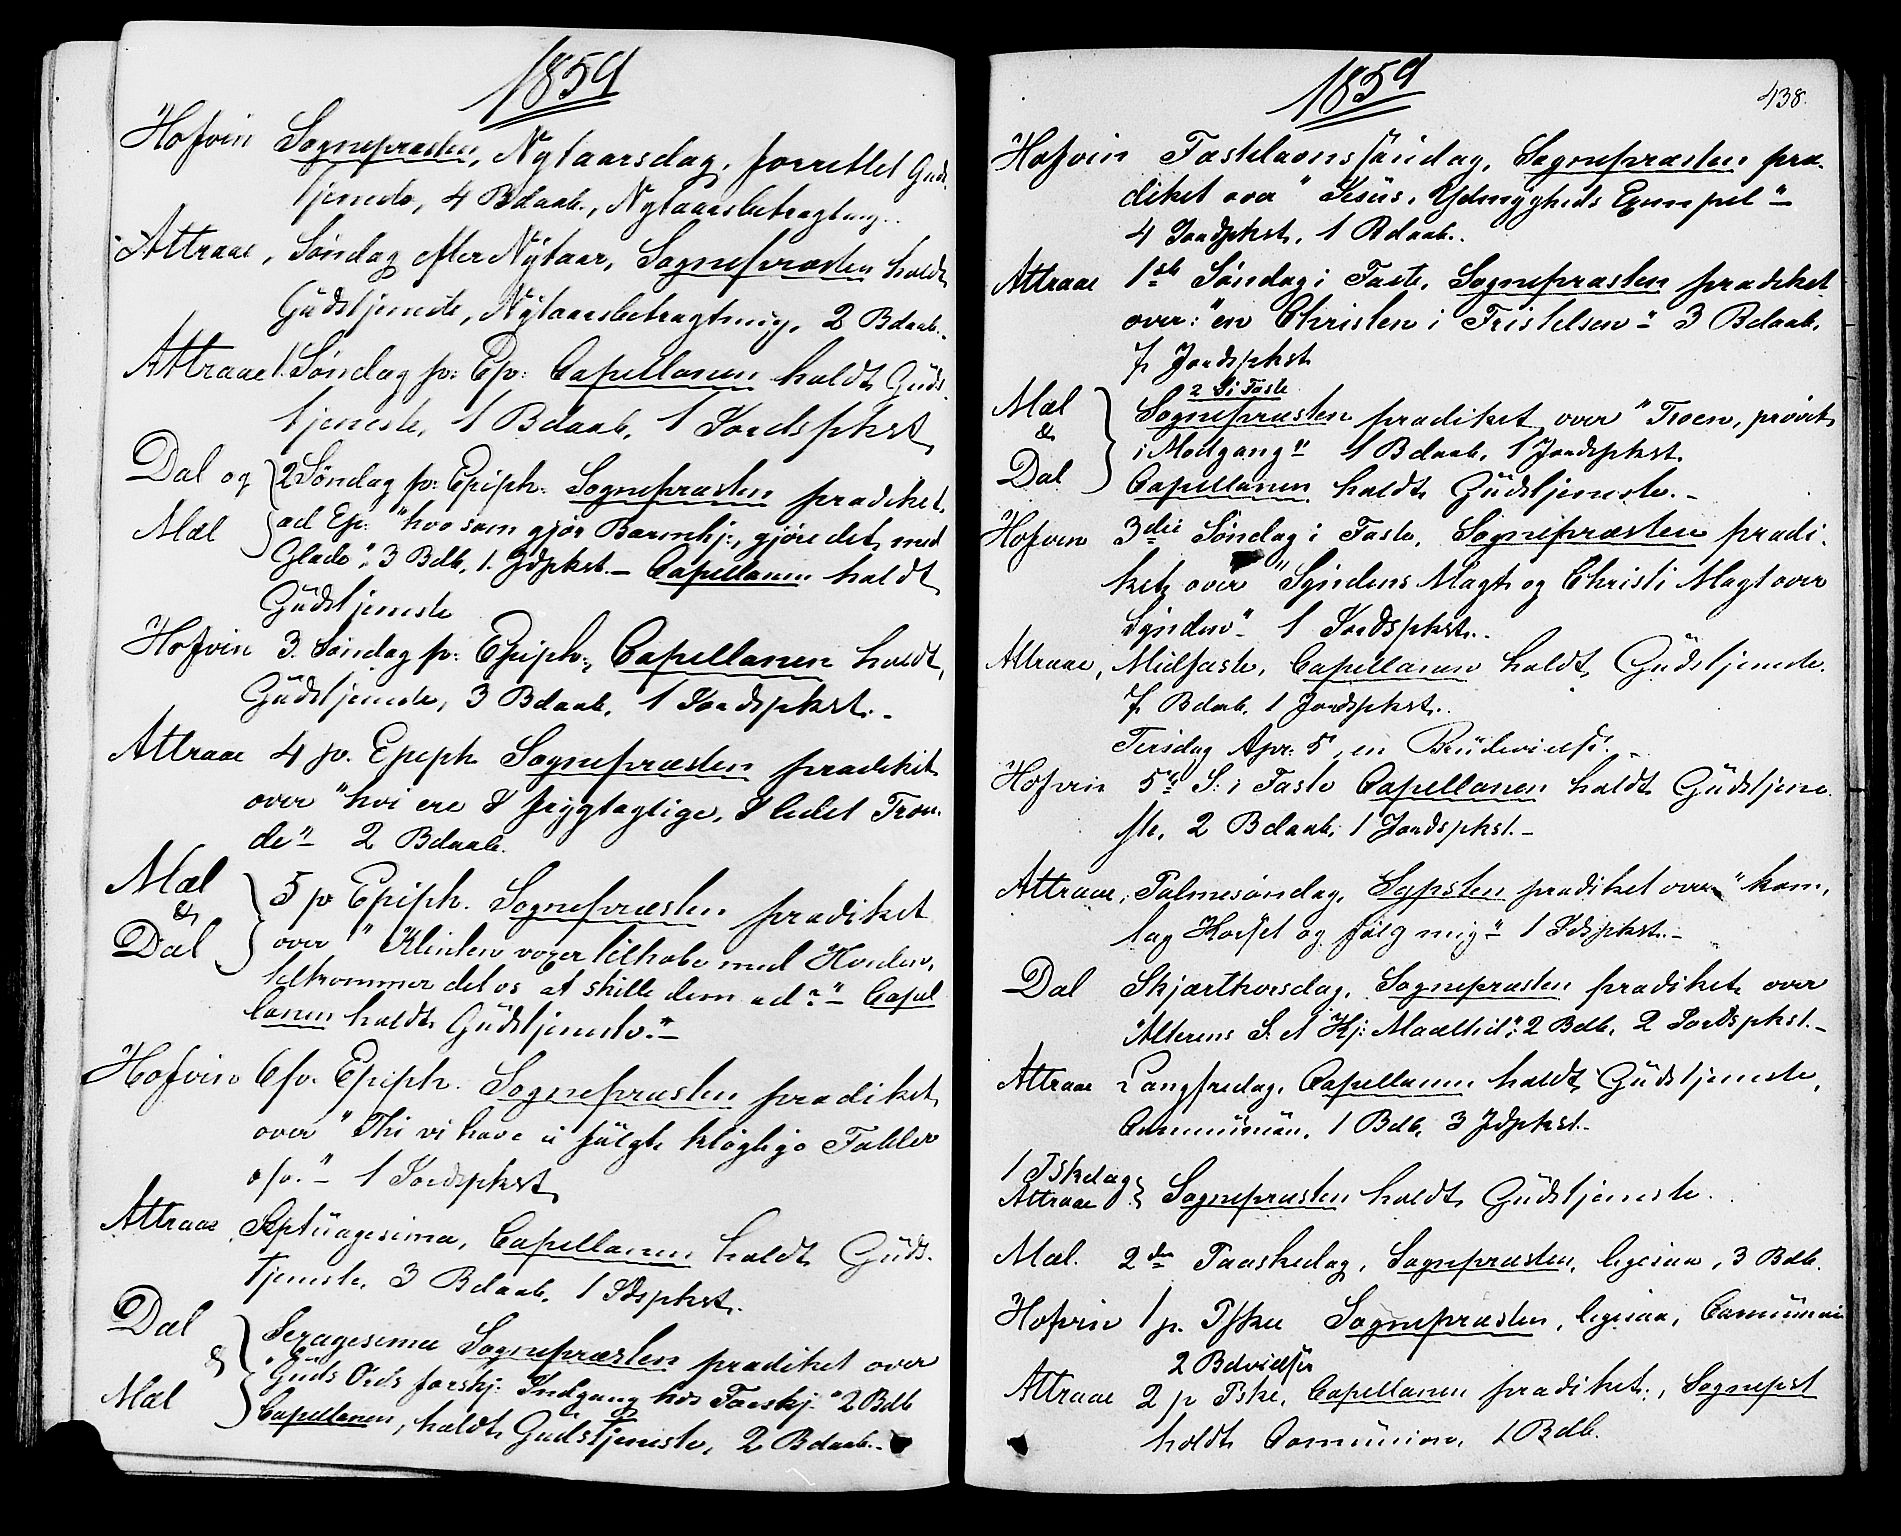 1859
Hofvin Sognepræsten, Nytaarsdag, forrettet Guds-
tjeneste, 4 Bdaab., Nytaarsbetragtning.
Attraae, Søndag efter Nytaar, Sognepræsten holdt
Gudstjeneste, Nytaarsbetragtning, 2 Bdaab.
Attraae 1. Søndag p: Ep: Capellanen holdt Guds-
tjeneste, 1 Bdaab, 1 Jordspkst
Dal og 2 Søndag p: Epiph: Sognepræsten prædiket
Mæl ad Ep: "hvo som gjør Barmhj:, gjøre det med
Glæde", 3 Bdb, 1. Jdpkst. – Capellanen holdt
Gudstjeneste
Hofvin 3. Søndag p: Epiph:, Capellanen holdt
Gudstjeneste, 3 Bdaab, 1 Jordspkst. -
Attraae 4 p. Epiph Sognepræsten prædiket
over "hvi ere I frygtagtige, I lidet Troen-
de" 2 Bdaab.
Mæl
&
Dal
5 p Epiph. Sognepræsten prædiket
over "Klinten voxer tilhobe med Hveden,
tilkommer det os at skille dem ad?" – Capel
lanen holdt Gudstjeneste. –
Hofvin 6 p. Epiph. Sognepræsten prædiket
over "Thi vi have ei fulgt kløgtige Fabler
osv." – 1 Jordspkst
Attraae, Septuagesima, Capellanen holdt Guds-
tjeneste, 3 Bdaab, 1 Jdspkst.
Dal
&
Mæl
Sexagesima Sognepræsten prædiket over
"Guds Ords forskj: Indgang hos Forskj:" 2 Bdb
Capellanen, holdt Gudstjeneste, 2 Bdaab. -
1859
438.
Hofvin Fastelavnssøndag, Sognepræsten præ-
diket over "Jesus, Ydmygheds Exempel" –
4 Jordpkst, 1 Bdaab.
Attraae 1ste Søndag i Faste, Sognepræsten prædiket
over: "en Christen i Fristelsen" – 3 Bdaab,
7 Jordspkst
Mæl
&
Dal
2 S i Faste
Sognepræsten prædiket over "Troen, prøvet
i Modgang" 1 Bdaab, 1 Jordspkst.
Capellanen holdt Gudstjeneste. -
Hofvin 3die Søndag i Faste, Sognepræsten prædi-
ket over "Syndens Magt og Christi Magt over
Synden" – 1 Jordspkst.
Attraae, Midfaste, Capellanen holdt Gudstjeneste.
7 Bdaab, 1 Jordspkst.
Tirsdag Apr: 5, en Brudevielse. -
Hofvin 5te S: i Faste Capellanen holdt Gudstjene-
ste, 2 Bdaab, 1 Jordspkst. -
Attraae, Palmesøndag, Sgpsten prædiket over "kom,
tag Korset og følg mig" 1 Jdspkst. -
Dal Skjærthorsdag, Sognepræsten prædiket over
"Alterens S. et Kj: Maaltid": 2 Bdb, 2 Jordspkst. -
Attraae Langfredag, Capellanen holdt Gudstjeneste,
Communion, 1 Bdb, 3 Jdpkst -
1 Pskedag
Attraae Sognepræsten holdt Gudstjeneste.
Mæl. 2den Paaskedag, Sognepræsten, ligesaa, 3 Bdb.
Hofvin 1 p. Pske Sognepræsten, ligesaa, Comunion
2 Bdvielser
Attraae 2 p Pske, Capellanen prædiket:, Sognepst
holdt Comunion, 1 Bdb.